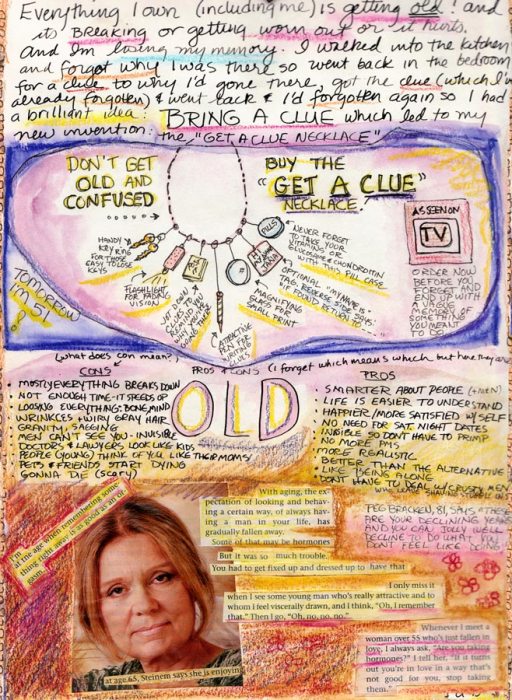 Everything I own (including me) is getting old! and
its BREAKING or getting worn out or it hurts.
And I'm losing my memory. I walked into the kitchen
and forgot why I was there so went back in the bedroom
for a clue to why I'd gone there, got the clue (which I'd
already forgotten) & went back & I'd forgotten again so I had
a brilliant idea: BRING A CLUE which led to my
new invention: the "GET A CLUE NECKLACE"
DON'T GET
OLD AND
CONFUSED
BUY THE
"GET A CLUE"
NECKLACE!
AS SEEN ON
TV
HANDY
KEY RING
FOR THOSE
EASY TO LOSE
KEYS
FLASHLIGHT
FOR FADING
VISION
ATTRACTIVE
PEN FOR
WRITING
CLUES
MAGNIFYING
GLASS FOR
SMALL PRINT
OPTIONAL "MY NAME IS"
TAG, REVERSE SIDE SAYS:
"IF FOUND RETURN TO"
PILLS
NEVER FORGET
TO TAKE YOUR
VITAMINS OR
GLUCOSAMINE & CHONDROITIN
WITH THIS PILL CASE
ORDER NOW
BEFORE YOU
FORGET AND
END UP WITH
A VAGUE
MEMORY OF
SOMETHING
YOU MEANT
TO DO
TOMORROW
I'M 51
(what does con mean?)
PROS & CONS (I forget which means which but here they are)
CONS
• MOSTLY EVERYTHING BREAKS DOWN
• NOT ENOUGH TIME - IT SPEEDS UP
• LOOSING EVERYTHING: BONE, MIND
• WRINKLES & WIRY GRAY HAIR
• GRAVITY, SAGGING
• MEN CAN'T SEE YOU - INVISIBLE
• DOCTORS & LAWYERS LOOK LIKE KIDS
• PEOPLE (YOUNG) THINK OF YOU LIKE THEIR MOMS
• PETS & FRIENDS START DYING
• GONNA DIE (scary)
OLD
PROS
• SMARTER ABOUT PEOPLE (& MEN)
• LIFE IS EASIER TO UNDERSTAND
• HAPPIER/MORE SATISFIED W/ SELF
• NO NEED FOR SAT. NIGHT DATES
• INVISIBLE SO DON'T HAVE TO PRIMP
• NO MORE PMS
• MORE REALISTIC
• BETTER THAN THE ALTERNATIVE
• LIKE BEING ALONE
• DONT HAVE TO DEAL W/ CRUSTY MEN
PEG BRACKEN, 81, SAYS "THESE
ARE YOUR DECLINING YEARS
AND YOU CAN JOLLY WELL
DECLINE TO DO WHAT YOU
DON'T FEEL LIKE DOING"
at my age, when remembering some-
thing right away is as good as an or-
gasm.
With aging, the ex
pectation of looking and behav-
ing a certain way, of always hav-
ing a man in your life, has
gradually fallen away.
Some of that may be hormones
But it was so much trouble.
You had to get fixed up and dressed up to have that
I only miss it
when I see some young man who's really attractive and to
whom I feel viscerally drawn, and I think, "Oh, I remember
that." Then I go, "Oh, no, no, no."
Whenever I meet a
woman over 55 who's just fallen in
love, I always ask, "Are you taking
hormones?" I tell her, "If it turns
out you're in love in a way that's
not good for you, stop taking
them."
at age 65, Steinem says she is enjoying